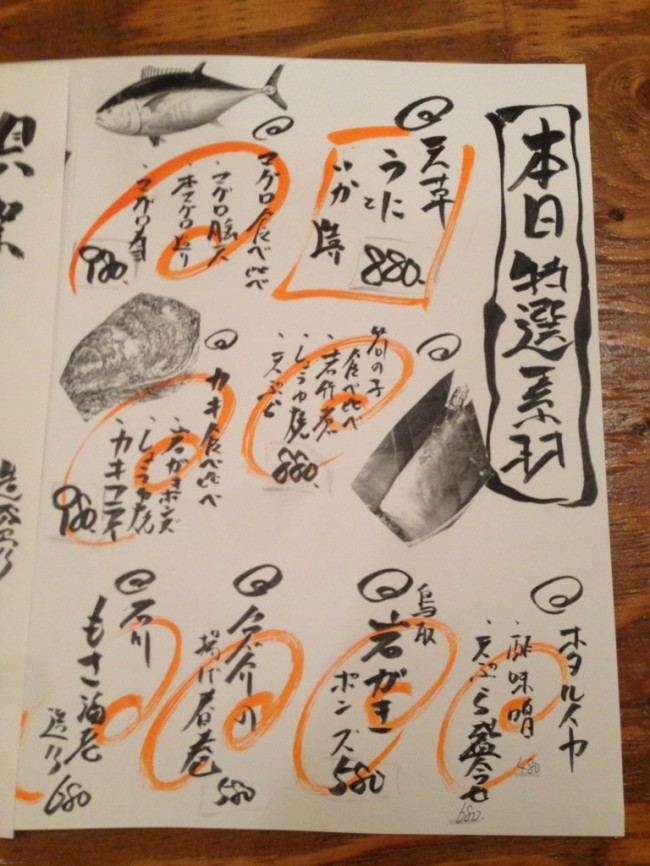 本日特選素羽
天草
うに
と
いか
880.
マグロ食べ比べ
・マグロ脳天
・本マグロ造り
・マグロ寿司
980.
筍の子
食べ比べ
・若竹煮
・しょうゆ焼
・天ぷら
880.
カキ食べ比べ
・岩がきポンズ
・しょうゆ焼
・カキフライ
980.
ホタルイカ
・酢味噌
480
・天ぷら盛合せ
680.
鳥取
岩がき
ポンズ
580
魚介の
揚げ春巻
580
石川
もさ海老
造り
680